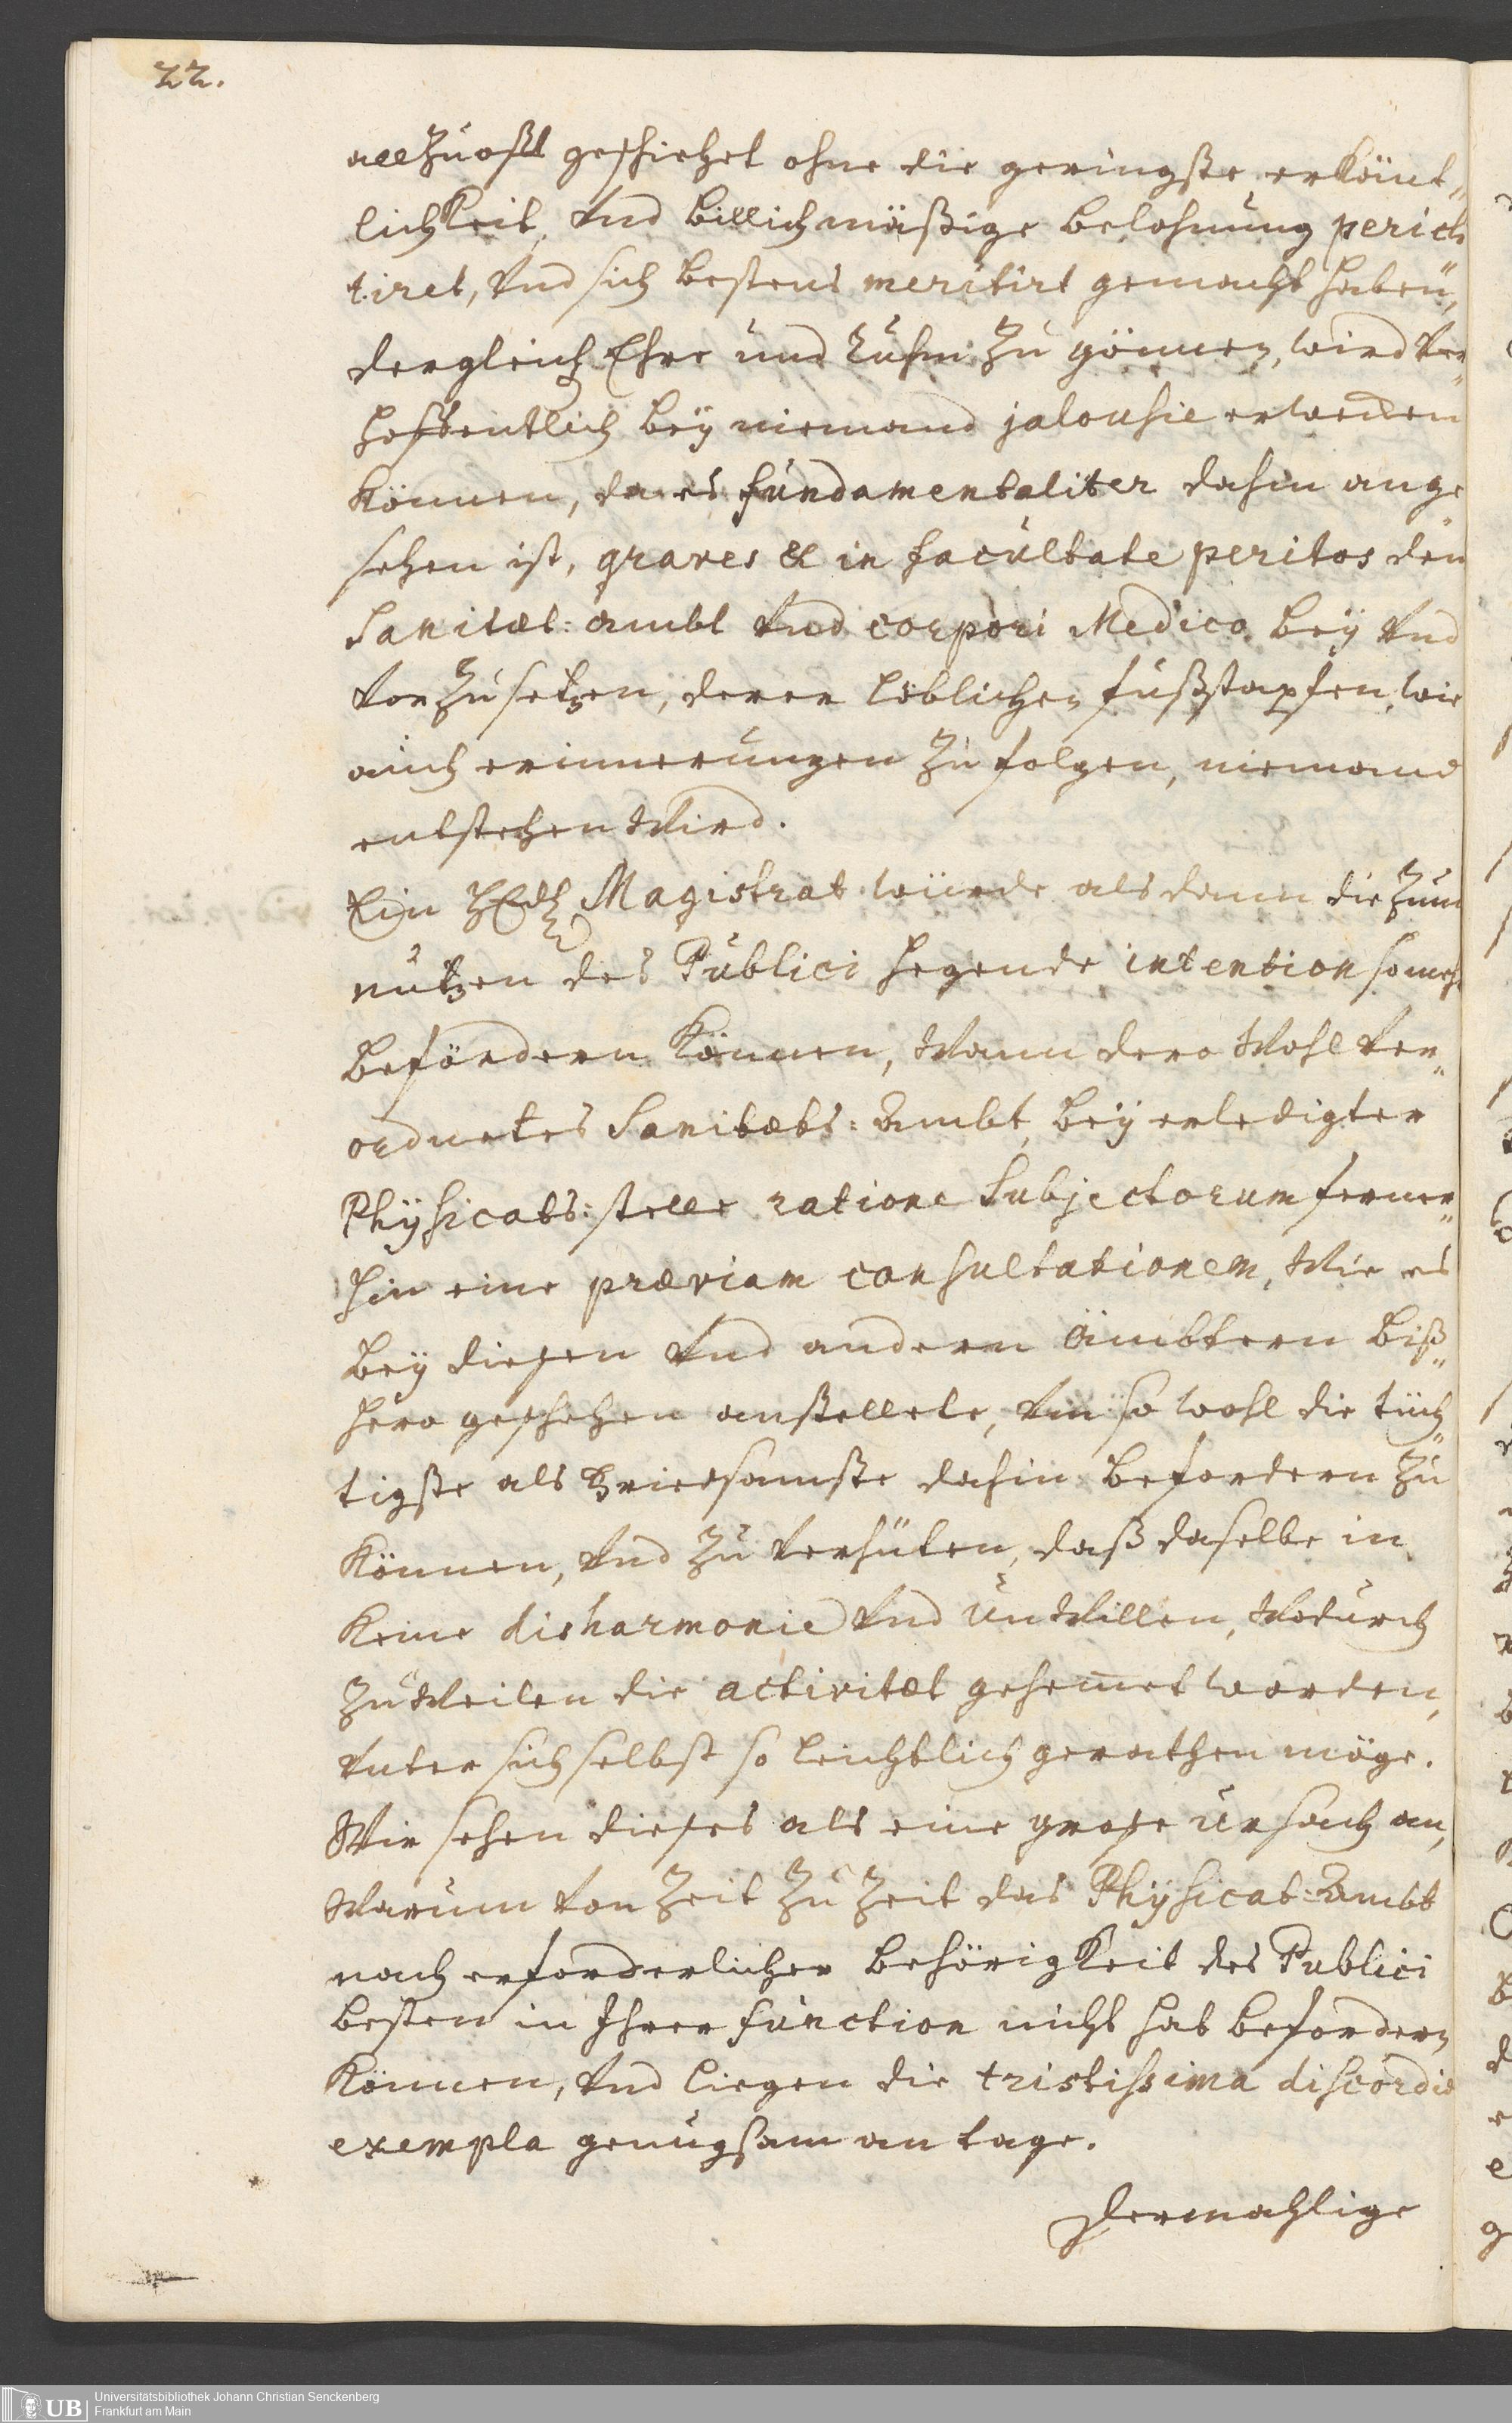 22.
allzuofft geschiehet ohne die geringste erkänt„
lichkeit, Vnd billichmäßige belohnung pericli
tiret, Vnd sich bestens meritirt gemacht haben,
dergleich Ehre und Ruhm zu gönnen, wird Ver„
hoffentlich bey niemand jalousie erwecken
können, da es fundamentaliter dahin ange„
sehen ist, graves & in facultate peritos dem
Sanitæt: ambt Vnd corpori Medico bey Vnd
Vorzusetzen, deren löblichen fußstapfen, wie
auch erinnerungen zu folgen, niemand
entstehen Wird.
Ein Magistrat würde als dann die zum
nutzen des Publici hegende intention so mehr
befördern können, Wann dero Wohl Ver„
ordnetes Sanitæts: Ambt, bey erledigter
Physicats: stelle ratione Subjectorum ferner„
hin eine præviam consultationem, Wie es
bey diesen Vnd andern ämbtern biß„
hero geschehen anstellete, Vm so wohl die tüch„
tigste als friedsamste dahin befordern zu
können, Vnd zu Verhüten, daß daselbe in
keine disharmonie Vnd unWillen, Wodurch
zuWeilen die activitæt gehemet worden,
Vnter sich selbst so leichtlich gerathen möge.
Wir sehen dieses als eine grose ursach an,
Warum Von Zeit zu Zeit das Physicat: Ambt
nach erforderlicher behörigkeit des Publici
besten in Ihrer function nicht hat befordern
können, Vnd liegen die tristissima discordiæ
exempla genugsam an tage.
Dermahlige
Universitätsbibliothek Johann Christian Senckenberg
Frankfurt am Main
UB